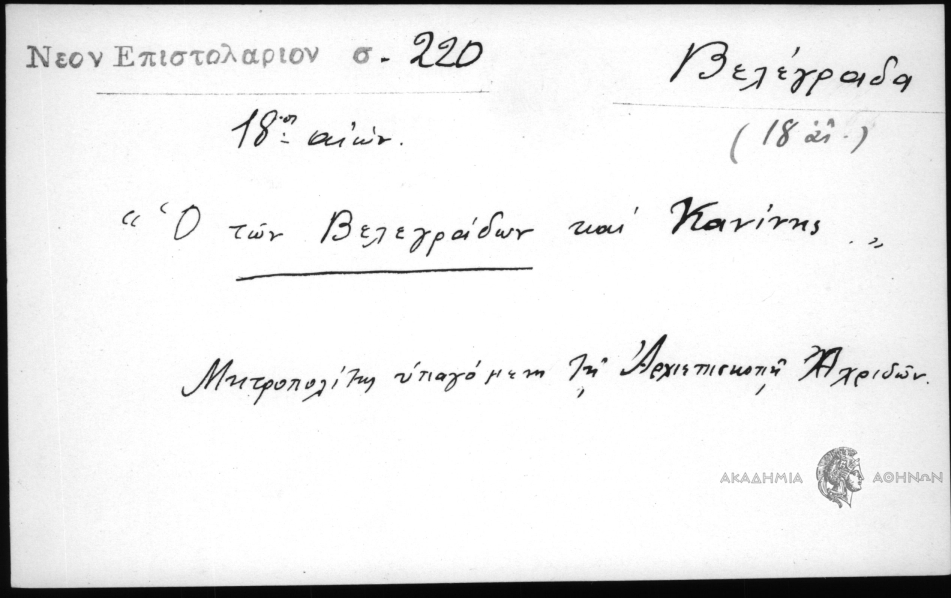 Νεον Επιστολαριον σ. 220
Βελέγραδα
18ος αἰών.
(18 αἰ.)
“Ὁ τῶν Βελεγράδων καί Κανίνης.”
Μητροπολίτης ὑπαγόμενη τῇ Ἀρχιεπισκοπῇ Ἀχριδῶν.
ΑΚΑΔΗΜΙΑ ΑΘΗΝΩΝ